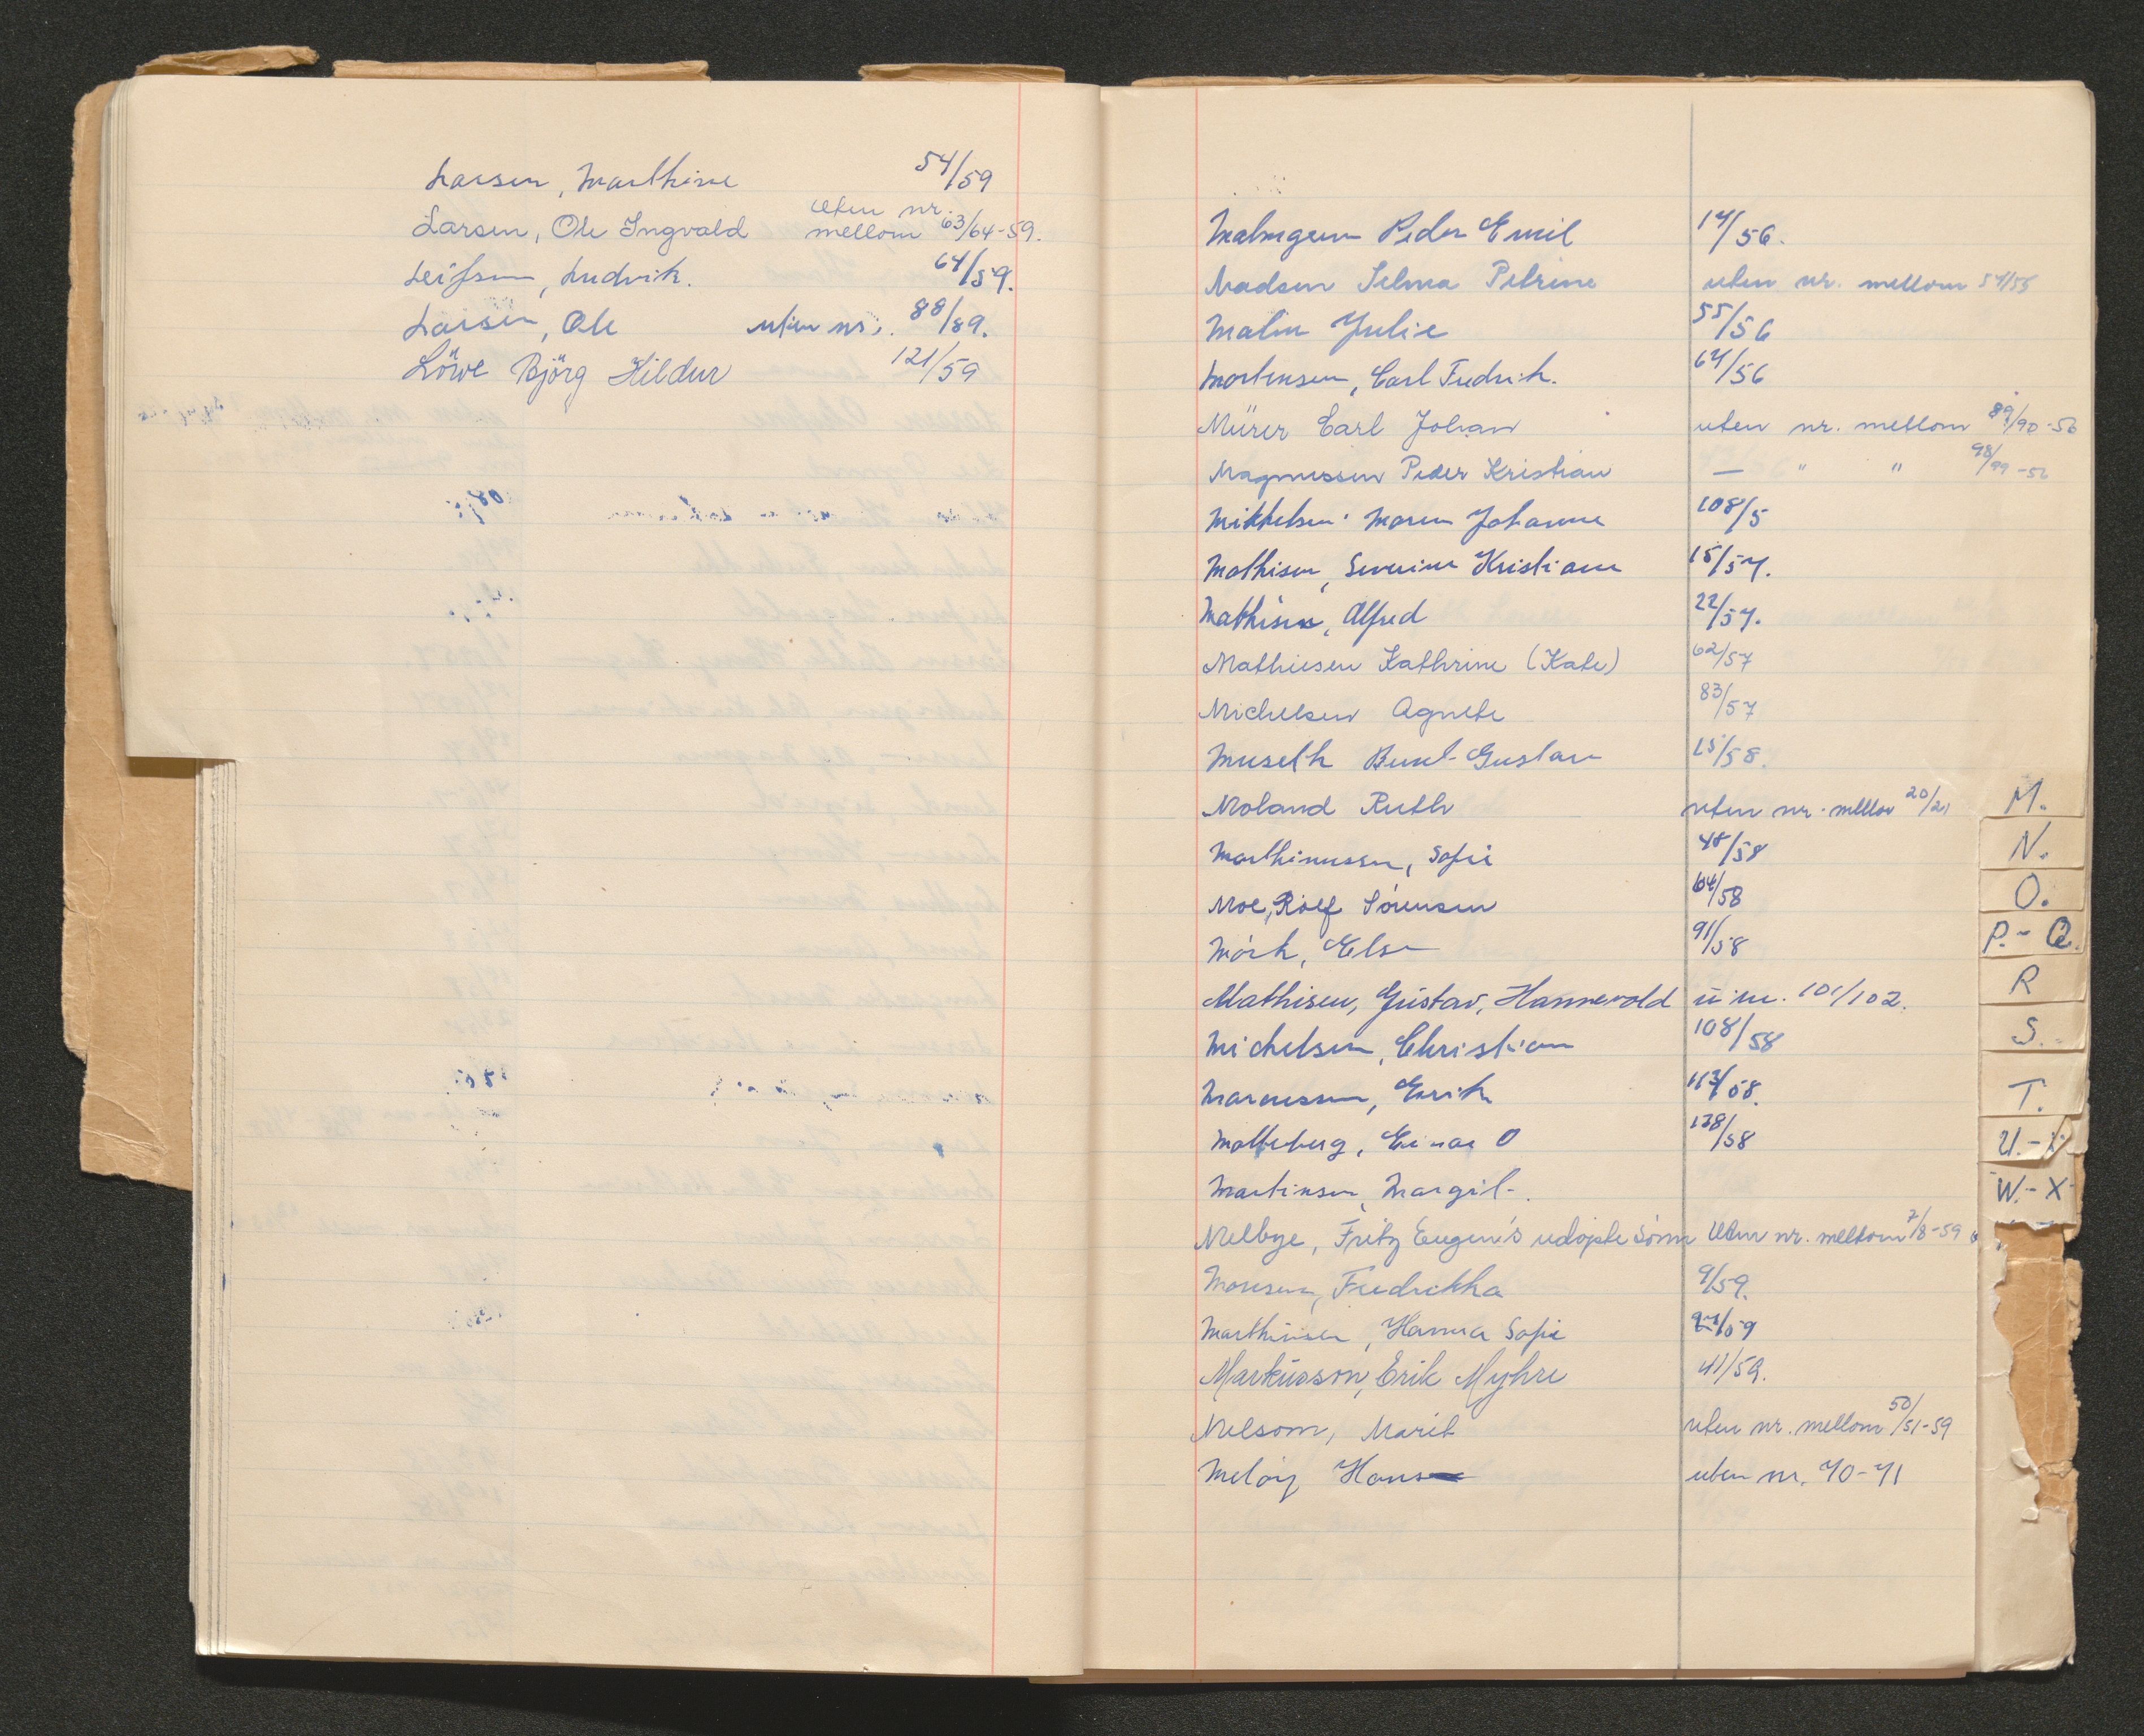 Larsen, Marthine 54/59
Larsen, Ole Ingvald uten nr. mellom 63/64-59.
Leifsen, Ludvik. 64/59.
Larsen, Ole uten nr. 88/89.
Löwe Björg Hildur 121/59
Malmgren Peder Emil 14/56.
Madsen Selma Petrine uten nr. mellom 54/55
Malm Julie 55/56
Mortensen, Carl Fredrik. 64/56
Mürer Carl Johan uten nr. mellom 89/90-56
Magnussen Peder Kristian — " " 98/99-56
Mikkelsen Maren Johanne 108/5
Mathisen, Severine Kristiane 15/57.
Mathisen, Alfred 22/57.
Mathiesen Kathrine (Kate) 62/57
Michelsen Agnete 83/57
Museth Bernt Gustav 15/58.
Moland Ruth uten nr. mellom 20/21
Marthinussen, Sofie 48/58
Moe, Rolf Sörensen 64/58
Mörk, Else 91/58
Mathisen, Gustav, Hannevold u.nr. 101/102.
Michelsen, Christian 108/58
Marcussen, Erik 58.
Molteberg, Einar O 138/58
Martinsen, Margit.
Melbye, Fritz Eugen's udöpte sönn Uten nr. mellom 7/8-59
Monsen, Fredrikka 9/59.
Marthinsen, Hanna Sofie /59
Markusson, Erik Myhre 41/59.
Melsom, Marit uten nr. mellom 50/51-59
Melöy Hans uten nr. 70-71
M.
N.
O.
P.-Q.
R
S.
T.
U.-V
W.-X